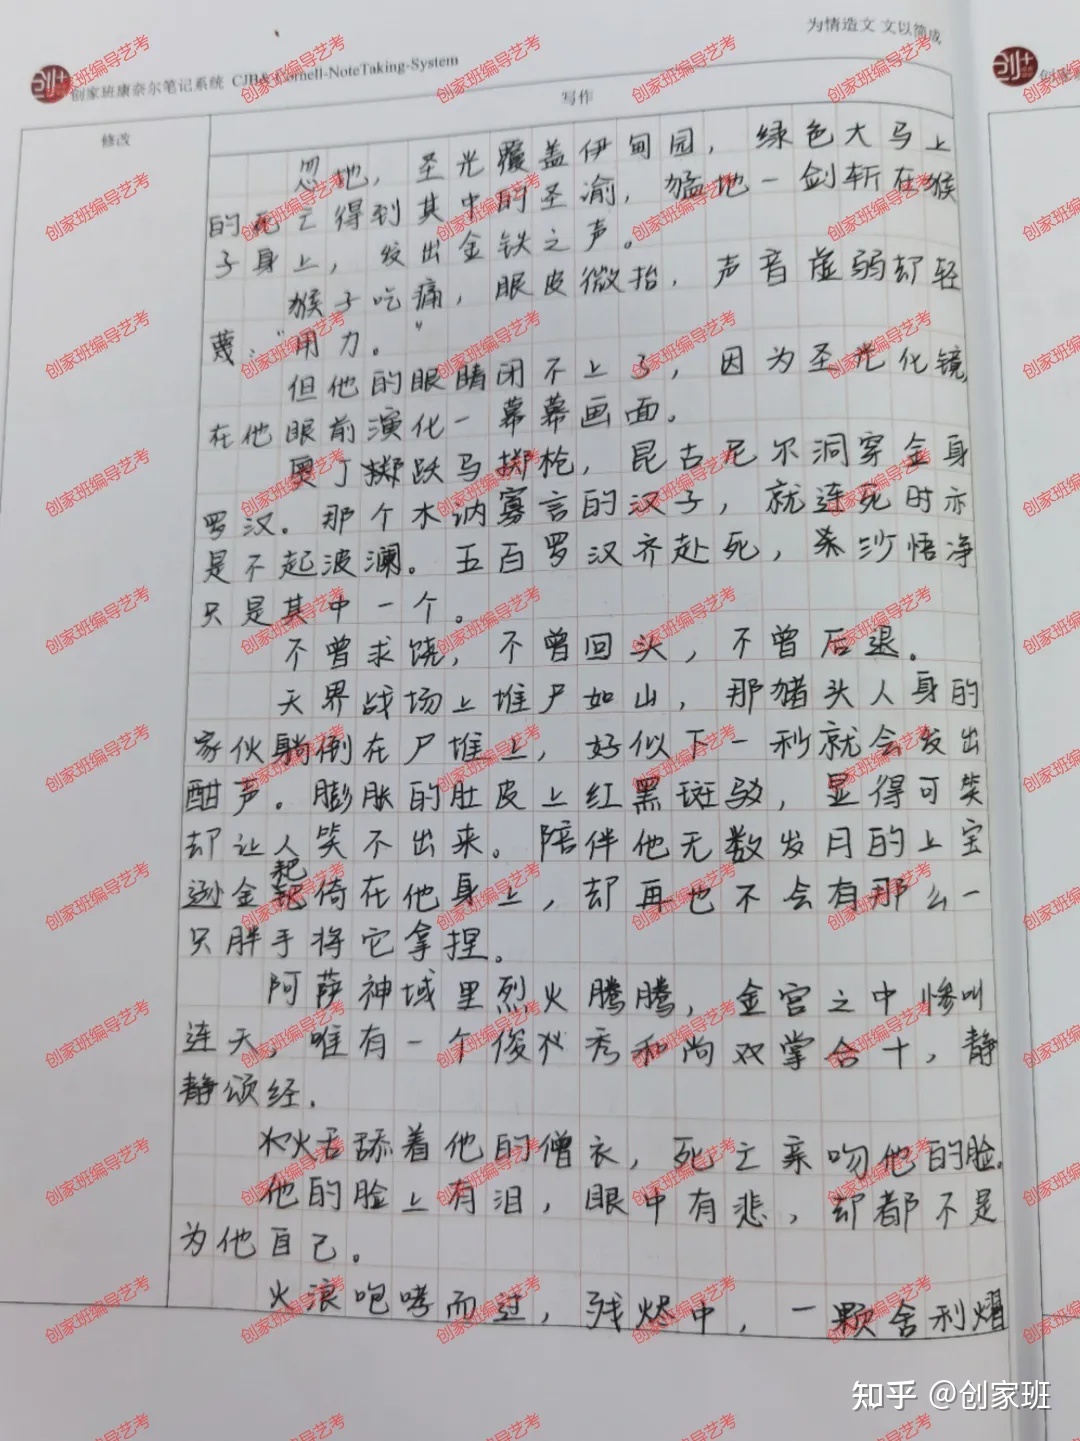 为情造文 文以简成
创家班康奈尔笔记系统 CJB& Cornell-NoteTaking-System
写作
修改
忽地，圣光覆盖伊甸园，绿色大马上
的死亡得到其中的圣谕，猛地一剑斩在猴
子身上，绞出金铁之声。
猴子吃痛，眼皮微抬，声音虚弱却轻
蔑：“用力。”
但他的眼睛闭不上了，因为圣光化镜，
在他眼前演化一幕幕画面。
奥丁掷跃马掷枪，昆古尼尔洞穿金身
罗汉。那个木讷寡言的汉子，就连死时亦
是不起波澜。五百罗汉齐赴死，杀沙悟净
只是其中一个。
不曾求饶，不曾回头，不曾后退。
天界战场上堆尸如山，那猪头人身的
家伙躺倒在尸堆上，好似下一秒就会发出
酣声。膨胀的肚皮上红黑斑驳，显得可笑
却让人笑不出来。陪伴他无数岁月的上宝
逊金耙倚在他身上，却再也不会有那么一
只胖手将它拿捏。
阿萨神域里烈火腾腾，金宫之中惨叫
连天，唯有一个俊秀和尚双掌合十，静
静颂经.
火舌舔着他的僧衣，死亡亲吻他的脸。
他的脸上有泪，眼中有悲，却都不是
为他自己。
火浪咆哮而过，残烬中，一颗舍利熠
知乎 @创家班